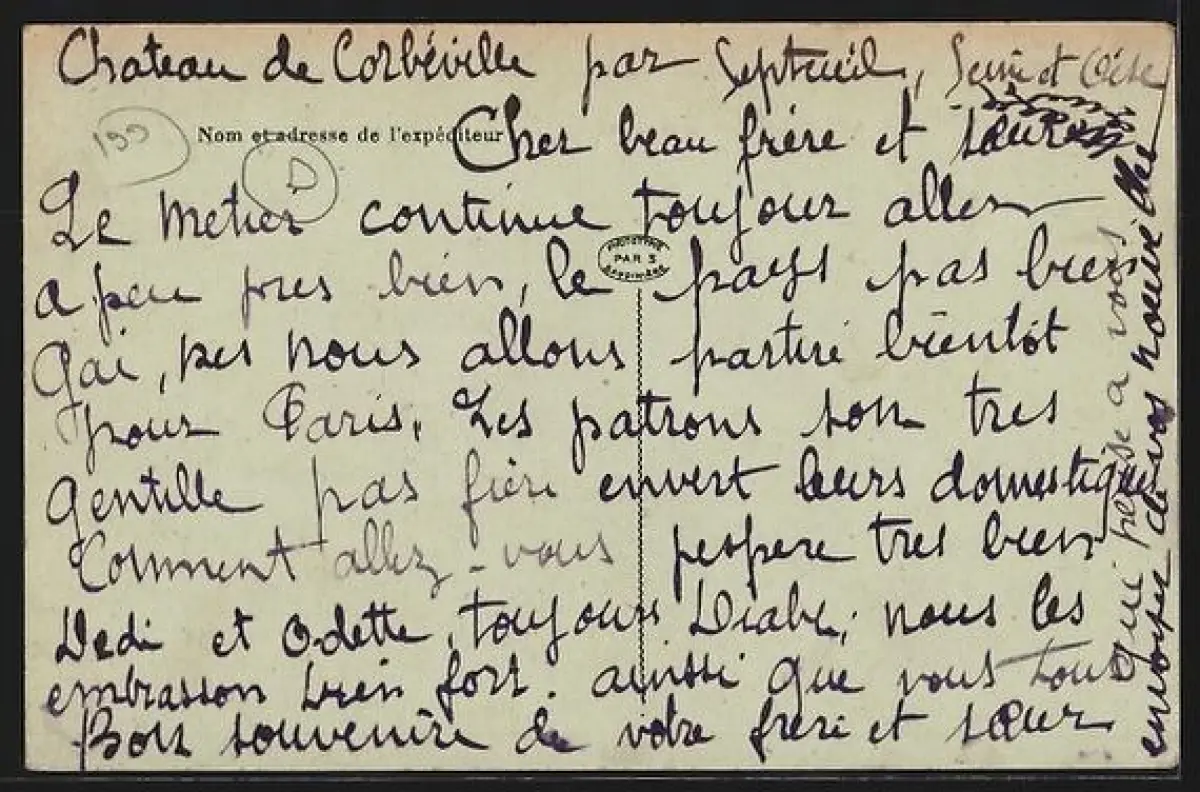 Chateau de Corbéville par Septeuil, Seine et Oise
199
Nom et adresse de l'expéditeur
D
Cher beau frère et sœur
Le metier continue toujour aller
a peu pres bien, le pays pas bien
Gai, mes nous allons partire bientôt
pour Paris. Les patrons son tres
Gentille pas fière envert leurs domestiques
Comment allez-vous j'espere tres bien
Dedi et Odette, toujours Diable, nous les
embrasson bien fort. ainssi que vous tous
Bon souvenire de votre frère et sœur
qui pense a vous
envoyer de vos nouvelle
PHOTOTYPIE
PAR S